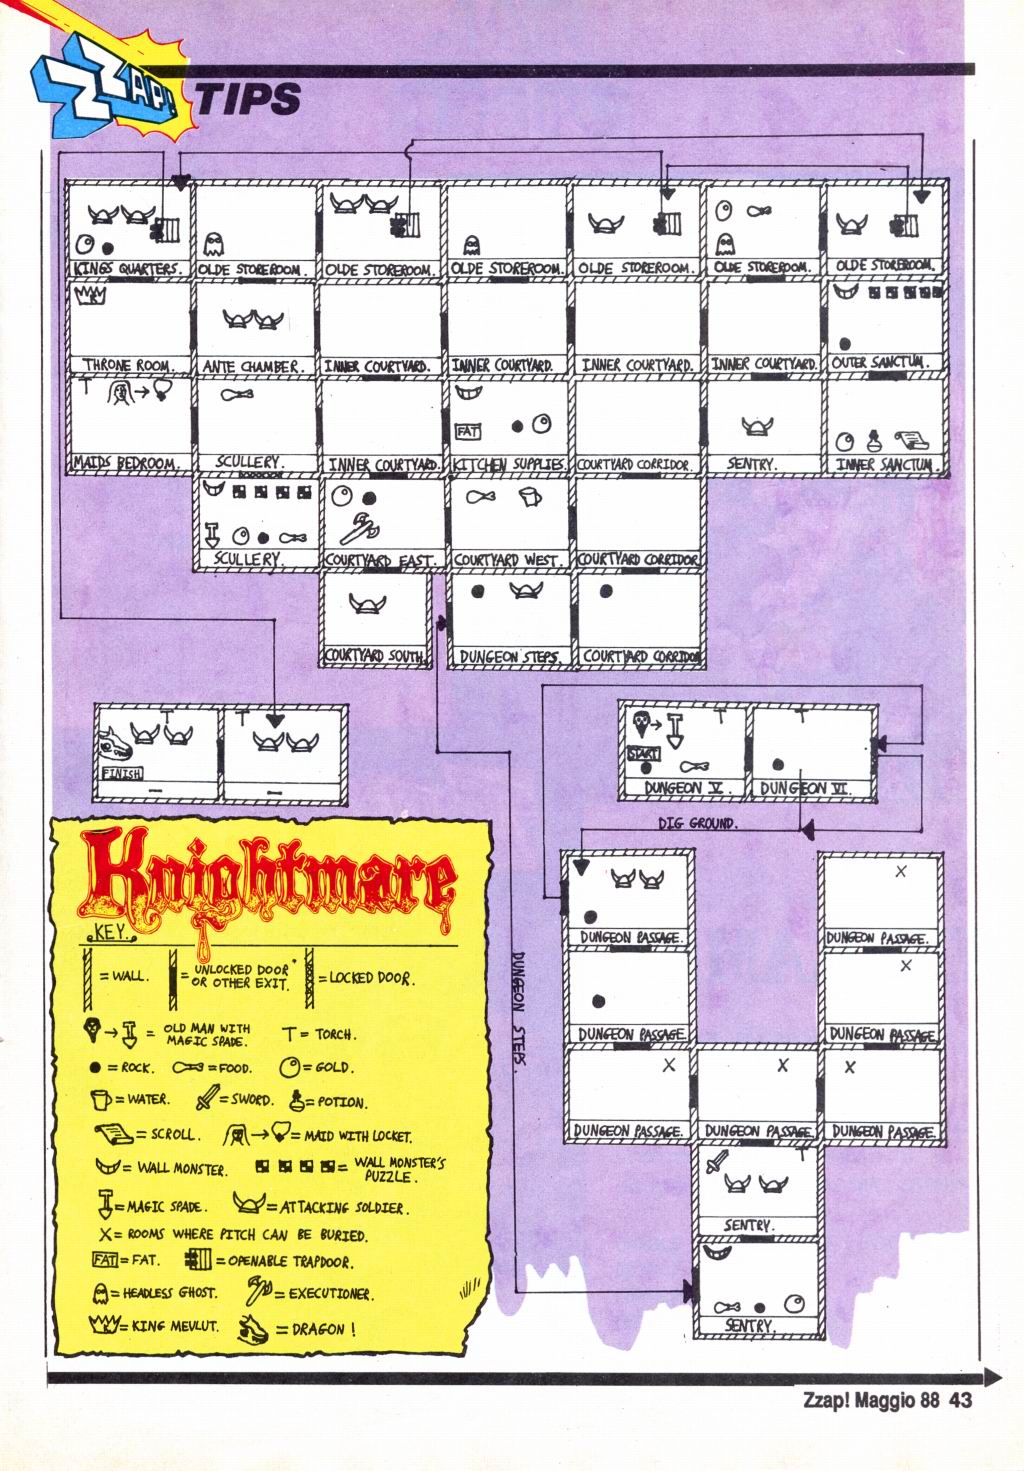 ZZAP! TIPS
KINGS QUARTERS. OLDE STOREROOM. OLDE STOREROOM. OLDE STOREROOM. OLDE STOREROOM. OLDE STOREROOM. OLDE STOREROOM.
THRONE ROOM. ANTE CHAMBER. INNER COURTYARD. INNER COURTYARD. INNER COURTYARD. INNER COURTYARD. OUTER SANCTUM.
T
FAT
MAIDS BEDROOM. SCULLERY. INNER COURTYARD. KITCHEN SUPPLIES. COURTYARD CORRIDOR. SENTRY. INNER SANCTUM.
SCULLERY. COURTYARD EAST. COURTYARD WEST. COURTYARD CORRIDOR
COURTYARD SOUTH. DUNGEON STEPS. COURTYARD CORRIDOR
T T
FINISH
T T
START
DUNGEON V. DUNGEON VI.
DIG GROUND.
X
DUNGEON PASSAGE. DUNGEON PASSAGE.
X
DUNGEON PASSAGE. DUNGEON PASSAGE.
X X X
DUNGEON PASSAGE. DUNGEON PASSAGE. DUNGEON PASSAGE.
T
SENTRY.
SENTRY.
DUNGEON STEPS.
Knightmare
KEY.
= WALL. = UNLOCKED DOOR OR OTHER EXIT. = LOCKED DOOR.
= OLD MAN WITH MAGIC SPADE. T = TORCH.
= ROCK. = FOOD. = GOLD.
= WATER. = SWORD. = POTION.
= SCROLL. = MAID WITH LOCKET.
= WALL MONSTER. = WALL MONSTER'S PUZZLE.
= MAGIC SPADE. = ATTACKING SOLDIER.
X = ROOMS WHERE PITCH CAN BE BURIED.
FAT = FAT. = OPENABLE TRAPDOOR.
= HEADLESS GHOST. = EXECUTIONER.
= KING MEVLUT. = DRAGON !
Zzap! Maggio 88 43